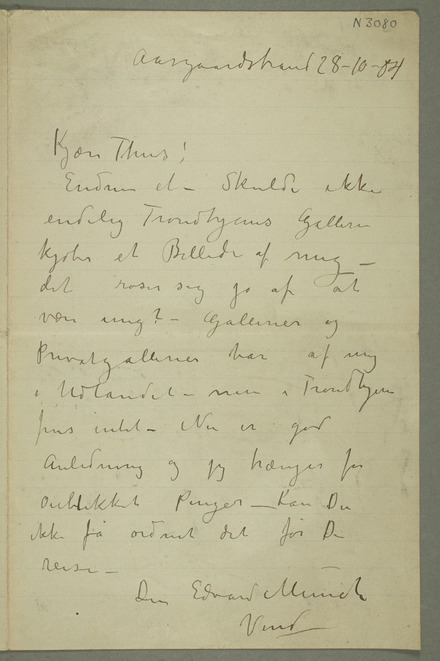 N 3080
Aasgaardstrand 28-10-04
Kjære Thiis!
Endnu et – Skulde ikke
endelig Trondhjems Galleri
kjøbe et Billede af mig –
det roser sig jo af at
være ung? – Gallerier og
Privatgallerier har af mig
i Udlandet – men i Trondhjem
fins intet – Nu er god
Anledning og jeg trænger for
Penger – Kan Du
ikke få ordnet det før Du
reiser –
Din Edvard Munch
Vend